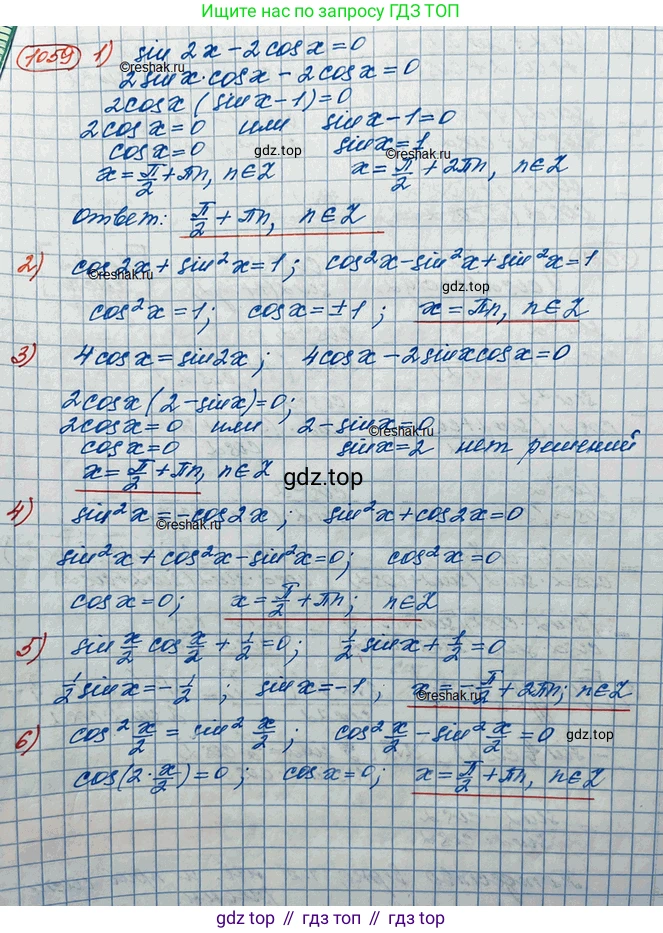 Ищите нас по запросу ГДЗ ТОП
1059 1) sin 2x - 2cos x = 0
©reshak.ru
2sin x · cos x - 2cos x = 0
2cos x (sin x - 1) = 0
2cos x = 0 или sin x - 1 = 0
cos x = 0 gdz.top sin x = 1 ©reshak.ru
x = π/2 + πn, n∈Z x = π/2 + 2πn, n∈Z
Ответ: π/2 + πn, n∈Z
2) cos 2x + sin²x = 1; cos²x - sin²x + sin²x = 1
©reshak.ru gdz.top
cos²x = 1; cos x = ±1; x = πn, n∈Z
3) 4cos x = sin 2x; 4cos x - 2sin x cos x = 0
2cos x (2 - sin x) = 0;
2cos x = 0 или 2 - sin x = 0
©reshak.ru
cos x = 0 sin x = 2 нет решений
x = π/2 + πn, n∈Z gdz.top
4) sin²x = -cos 2x; sin²x + cos 2x = 0
©reshak.ru
sin²x + cos²x - sin²x = 0; cos²x = 0
cos x = 0; x = π/2 + πn; n∈Z
5) sin x/2 cos x/2 + 1/2 = 0; 1/2 sin x + 1/2 = 0
1/2 sin x = -1/2; sin x = -1; x = -π/2 + 2πn; n∈Z
©reshak.ru
6) cos² x/2 = sin² x/2; cos² x/2 - sin² x/2 = 0 gdz.top
cos(2 · x/2) = 0; cos x = 0; x = π/2 + πn, n∈Z
gdz.top // гдз топ // gdz.top